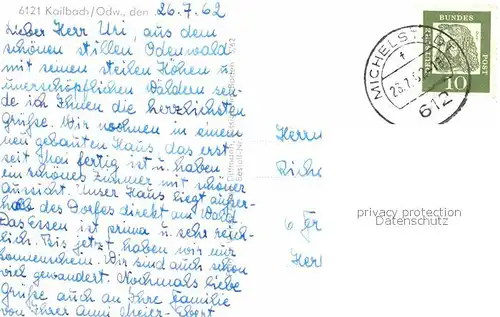 6121 Kailbach/Odw., den 26.7.62
Lieber Herr Uri, aus dem
schönen stillen Odenwald
mit seinen steilen Höhen u.
unerschöpflichen Wäldern sen-
de ich Ihnen die herzlichsten
Grüße. Wir wohnen in einem
neu gebauten Haus das erst
seit Mai fertig ist u. haben
ein schönes Zimmer mit schöner
Aussicht. Unser Haus liegt außer-
halb des Dorfes direkt am Wald
Das Essen ist prima u. sehr reich-
lich. Bis jetzt haben wir nur
Sonnenschein. Wir sind auch schon
viel gewandert. Nochmals liebe
Grüße auch an Ihre Familie
von Ihrer Anni Meier-Ebert
Bestell-Nr.
562
MICHELSTADT
6121
DEUTSCHE
BUNDES
POST
10
Herrn
6 Fr
Her
privacy protection
Datenschutz